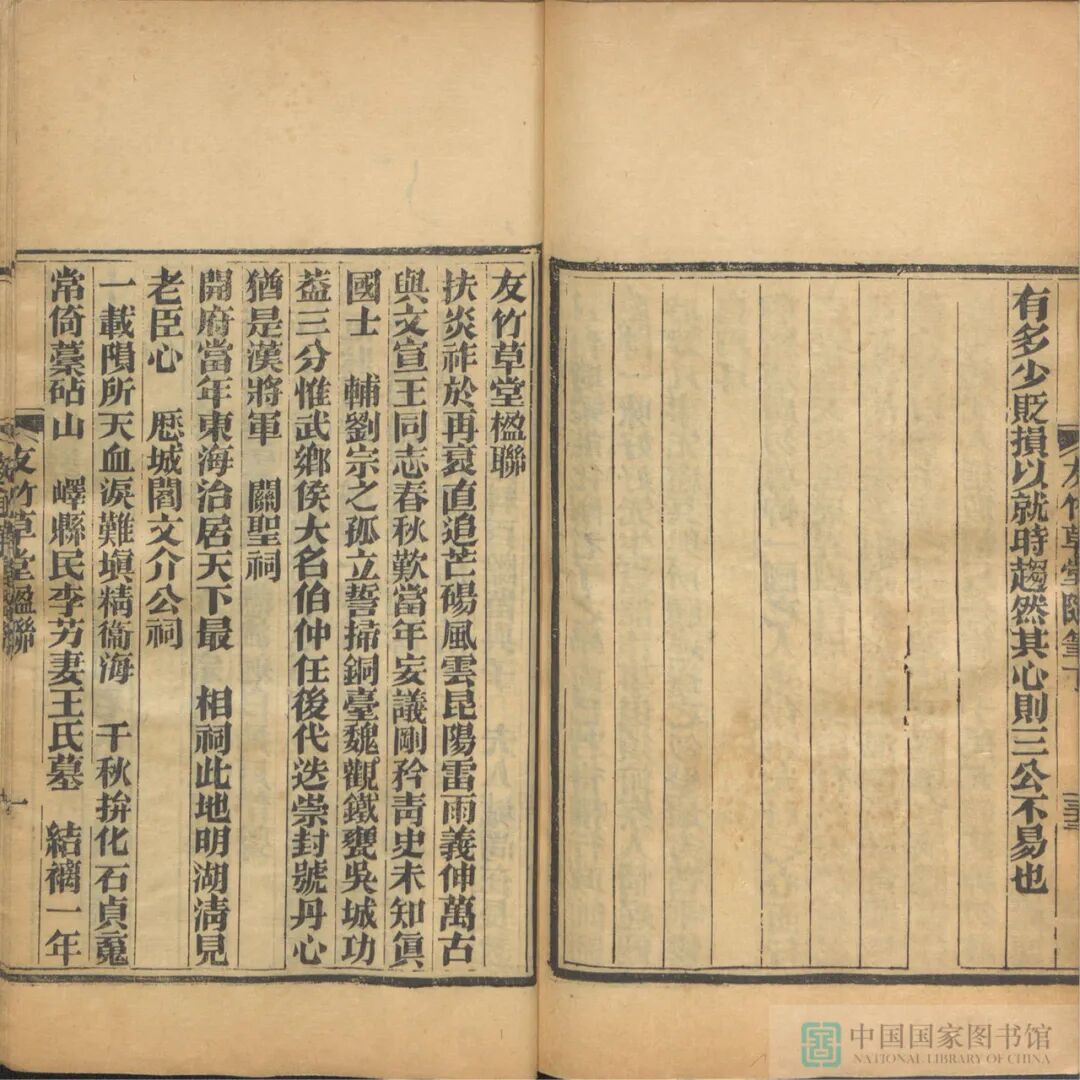 有多少貶損以就時趨然其心則三公不易也
友竹草堂隨筆下
三三
友竹草堂楹聯
扶炎祚於再衰直追芒碭風雲昆陽雷雨義伸萬古
與文宣王同志春秋歎當年妄議剛矜靑史未知眞
國士　輔劉宗之孤立誓掃銅臺魏觀鐵甕吳城功
蓋三分惟武鄉侯大名伯仲任後代迭崇封號丹心
猶是漢將軍　關聖祠
開府當年東海治居天下最　相祠此地明湖淸見
老臣心　厯城閻文介公祠
一載隕所天血淚難塡精衞海　千秋拚化石貞䰟
常倚藁砧山　嶧縣民李艻妻王氏墓　結褵一年
友竹草堂楹聯
一
中国国家图书馆
NATIONAL LIBRARY OF CHINA